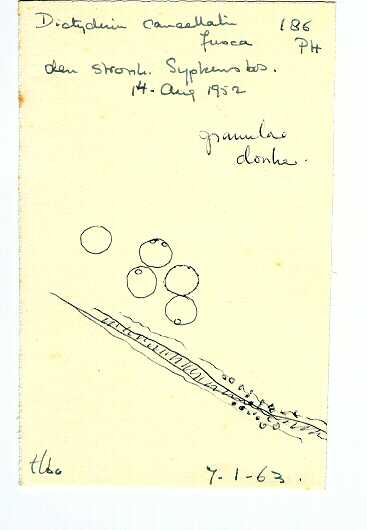 Dictydium cancellati 186
fusca PH
den stronk. Sypkensbos.
14. Aug 1952
granulae
donker.
7-1-63.